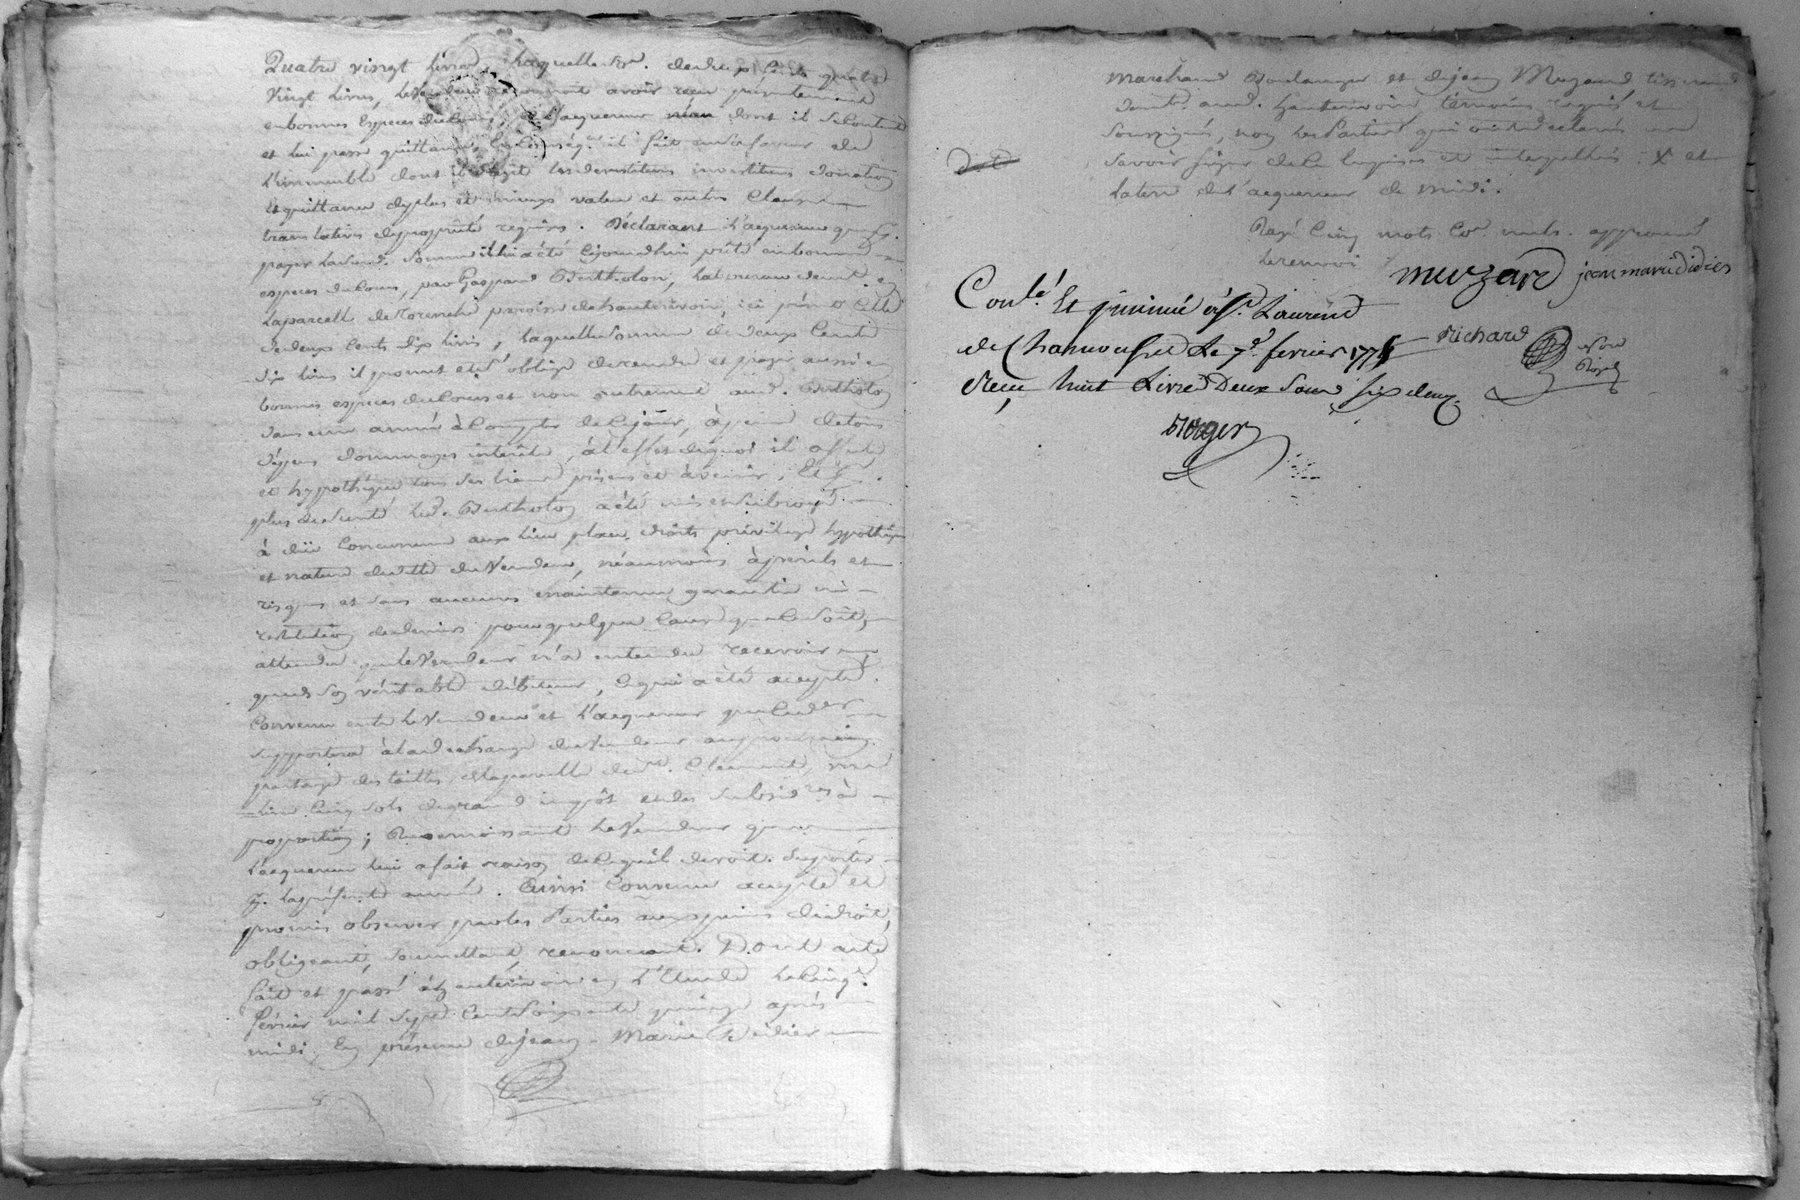 Quatre vingt livres, laquelle so.e de deux cents quatre
Vingt livres, le vendeur reconnoit avoir reçu présentement
en bonnes especes du cours, de l'acquereur dont il se contente
et lui passe quittance, En conséq.ce il fait en sa faveur de
l'immeuble dont il s'agit les devestitures investitures donation
et quittance de plus et mieux value et autres Clauses
translatives de propriété requises. Déclarant l'acquereur que p.r
payer lad. somme il lui a été cejourd'hui prêté en bonnes
especes du cours, par Gaspard Bertholon, laboureur demt. en
la parcelle de paroisse de hauterivoire, ici présent Celle
de deux cents dix livres, laquelle somme de deux Cents
dix livres il promet et s'oblige de rendre et payer aussi en
bonnes especes du cours et non autrement aud. Bertholon
dans une année à Compter de ce jour, à peine de tous
dépens dommages intérêts, à l'effet de quoi il affecte
et hypothèque tous ses biens présens et à venir, Et p.r
plus de sureté led. Bertholon a été mis et subrogé
à due Concurrence aux lieu place, droits privilege hypothèque
et nature de dette du Vendeur, néanmoins à périls et
risques et sans aucune maintenue garantie ni
restitution de deniers pour quelque Cause que ce soit,
attendu que le Vendeur n'a entendu recevoir
que de son véritable débiteur, ce qui a été accepté.
Convenu entre le Vendeur et l'acquereur que ce der.
supportera à la décharge du Vendeur au prochain
partage des tailles de la parcelle de St. Clement, une
livre Cinq sols de grand impôt et des subsid.res à
proportion; Reconnoissant le Vendeur que
l'acquereur lui a fait raison de ce qu'il devroit supporter
p.r la présente année. Ainsi Convenu accepté et
promis observer par les Parties aux peines de droit,
obligeant, soumettant, renonceant. Dont acte
fait et passé à hauterivoire en l'Etude le Cinq.
février mil Sept Cent Soixante quinze après
midi, En présence de jean Marie Didier
marchand Boulanger et de jean Muzard tisserand
demt. aud. hauterivoire témoins requis et
soussignés, non les Parties qui ont déclaré ne
savoir signer de ce enquises et interpellées. X et
la terre de l'acquereur de midi.
Rayé Cinq mots Co.e nuls. approuvé
le renvoi
muzard jean marie didier
Conlé Et insinué à St. Laurend
de Chamousset Le 7e fevrier 1775
Reçu huit Livres Deux Sous six den.
Richard
Roger